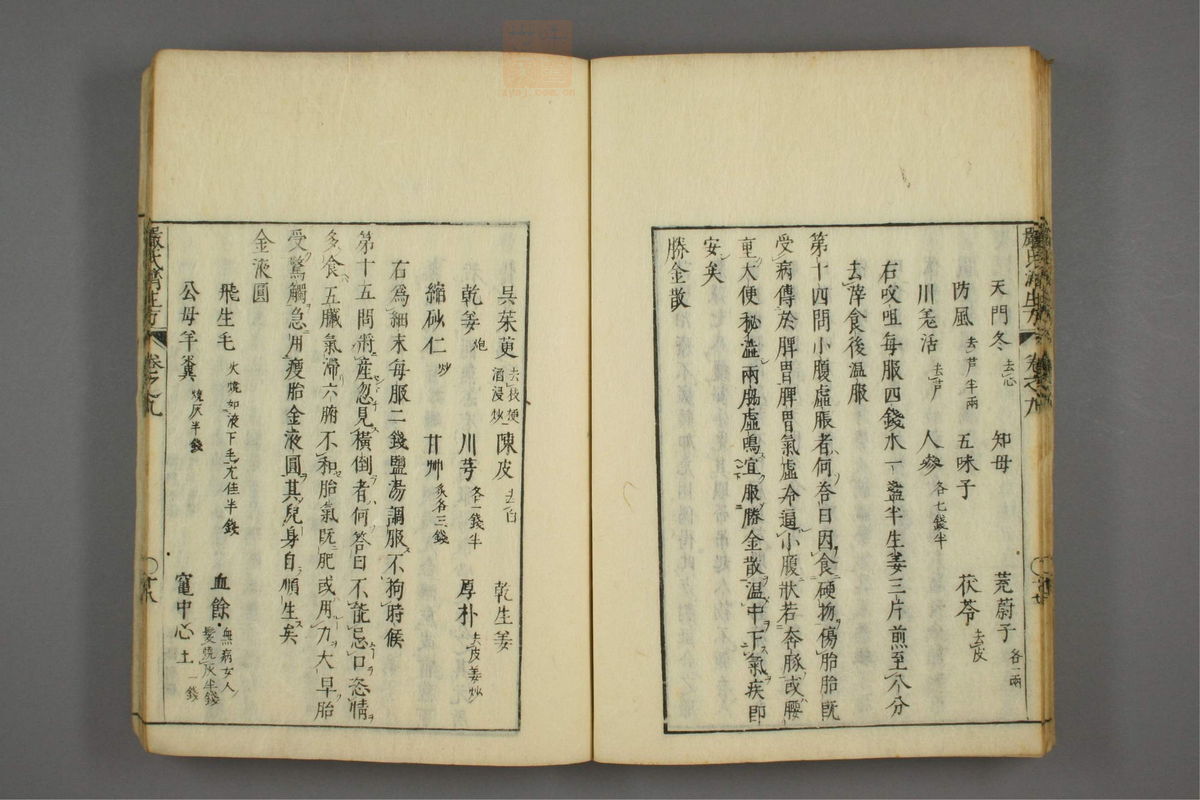 天門冬去心 知母 茺蔚子各一兩
防風去芦半兩 五味子 茯苓去皮
川羌活去芦 人參各七錢半
右㕮咀每服四錢水一盞半生姜三片煎至八分
去滓食後温服
第十四問小腹虛脹者何答曰因食硬物傷胎胎既
受病傳於脾胃脾胃氣虛冷逼小腹狀若奔豚或腰
重大便秘澁兩脇虛鳴宜服勝金散温中下氣疾即
安矣
勝金散
吳茱萸去枝梗酒浸炒 陳皮去白 乾生姜
乾姜炮 川芎各一錢半 厚朴去皮姜炒
縮砂仁炒 甘艸炙各三錢
右爲細末每服二錢鹽湯調服不拘時候
第十五問將産忽見橫倒者何答曰不能忌口恣情
多食五臟氣滯六腑不和胎氣既肥或用力大早胎
受驚觸急用瘦胎金液圓其兒身自順生矣
金液圓
飛生毛火燒如液下毛尤佳半錢 血餘無病女人髮燒灰半錢
公母羊糞燒灰半錢 竈中心土一錢
嚴氏濟生方 卷之九